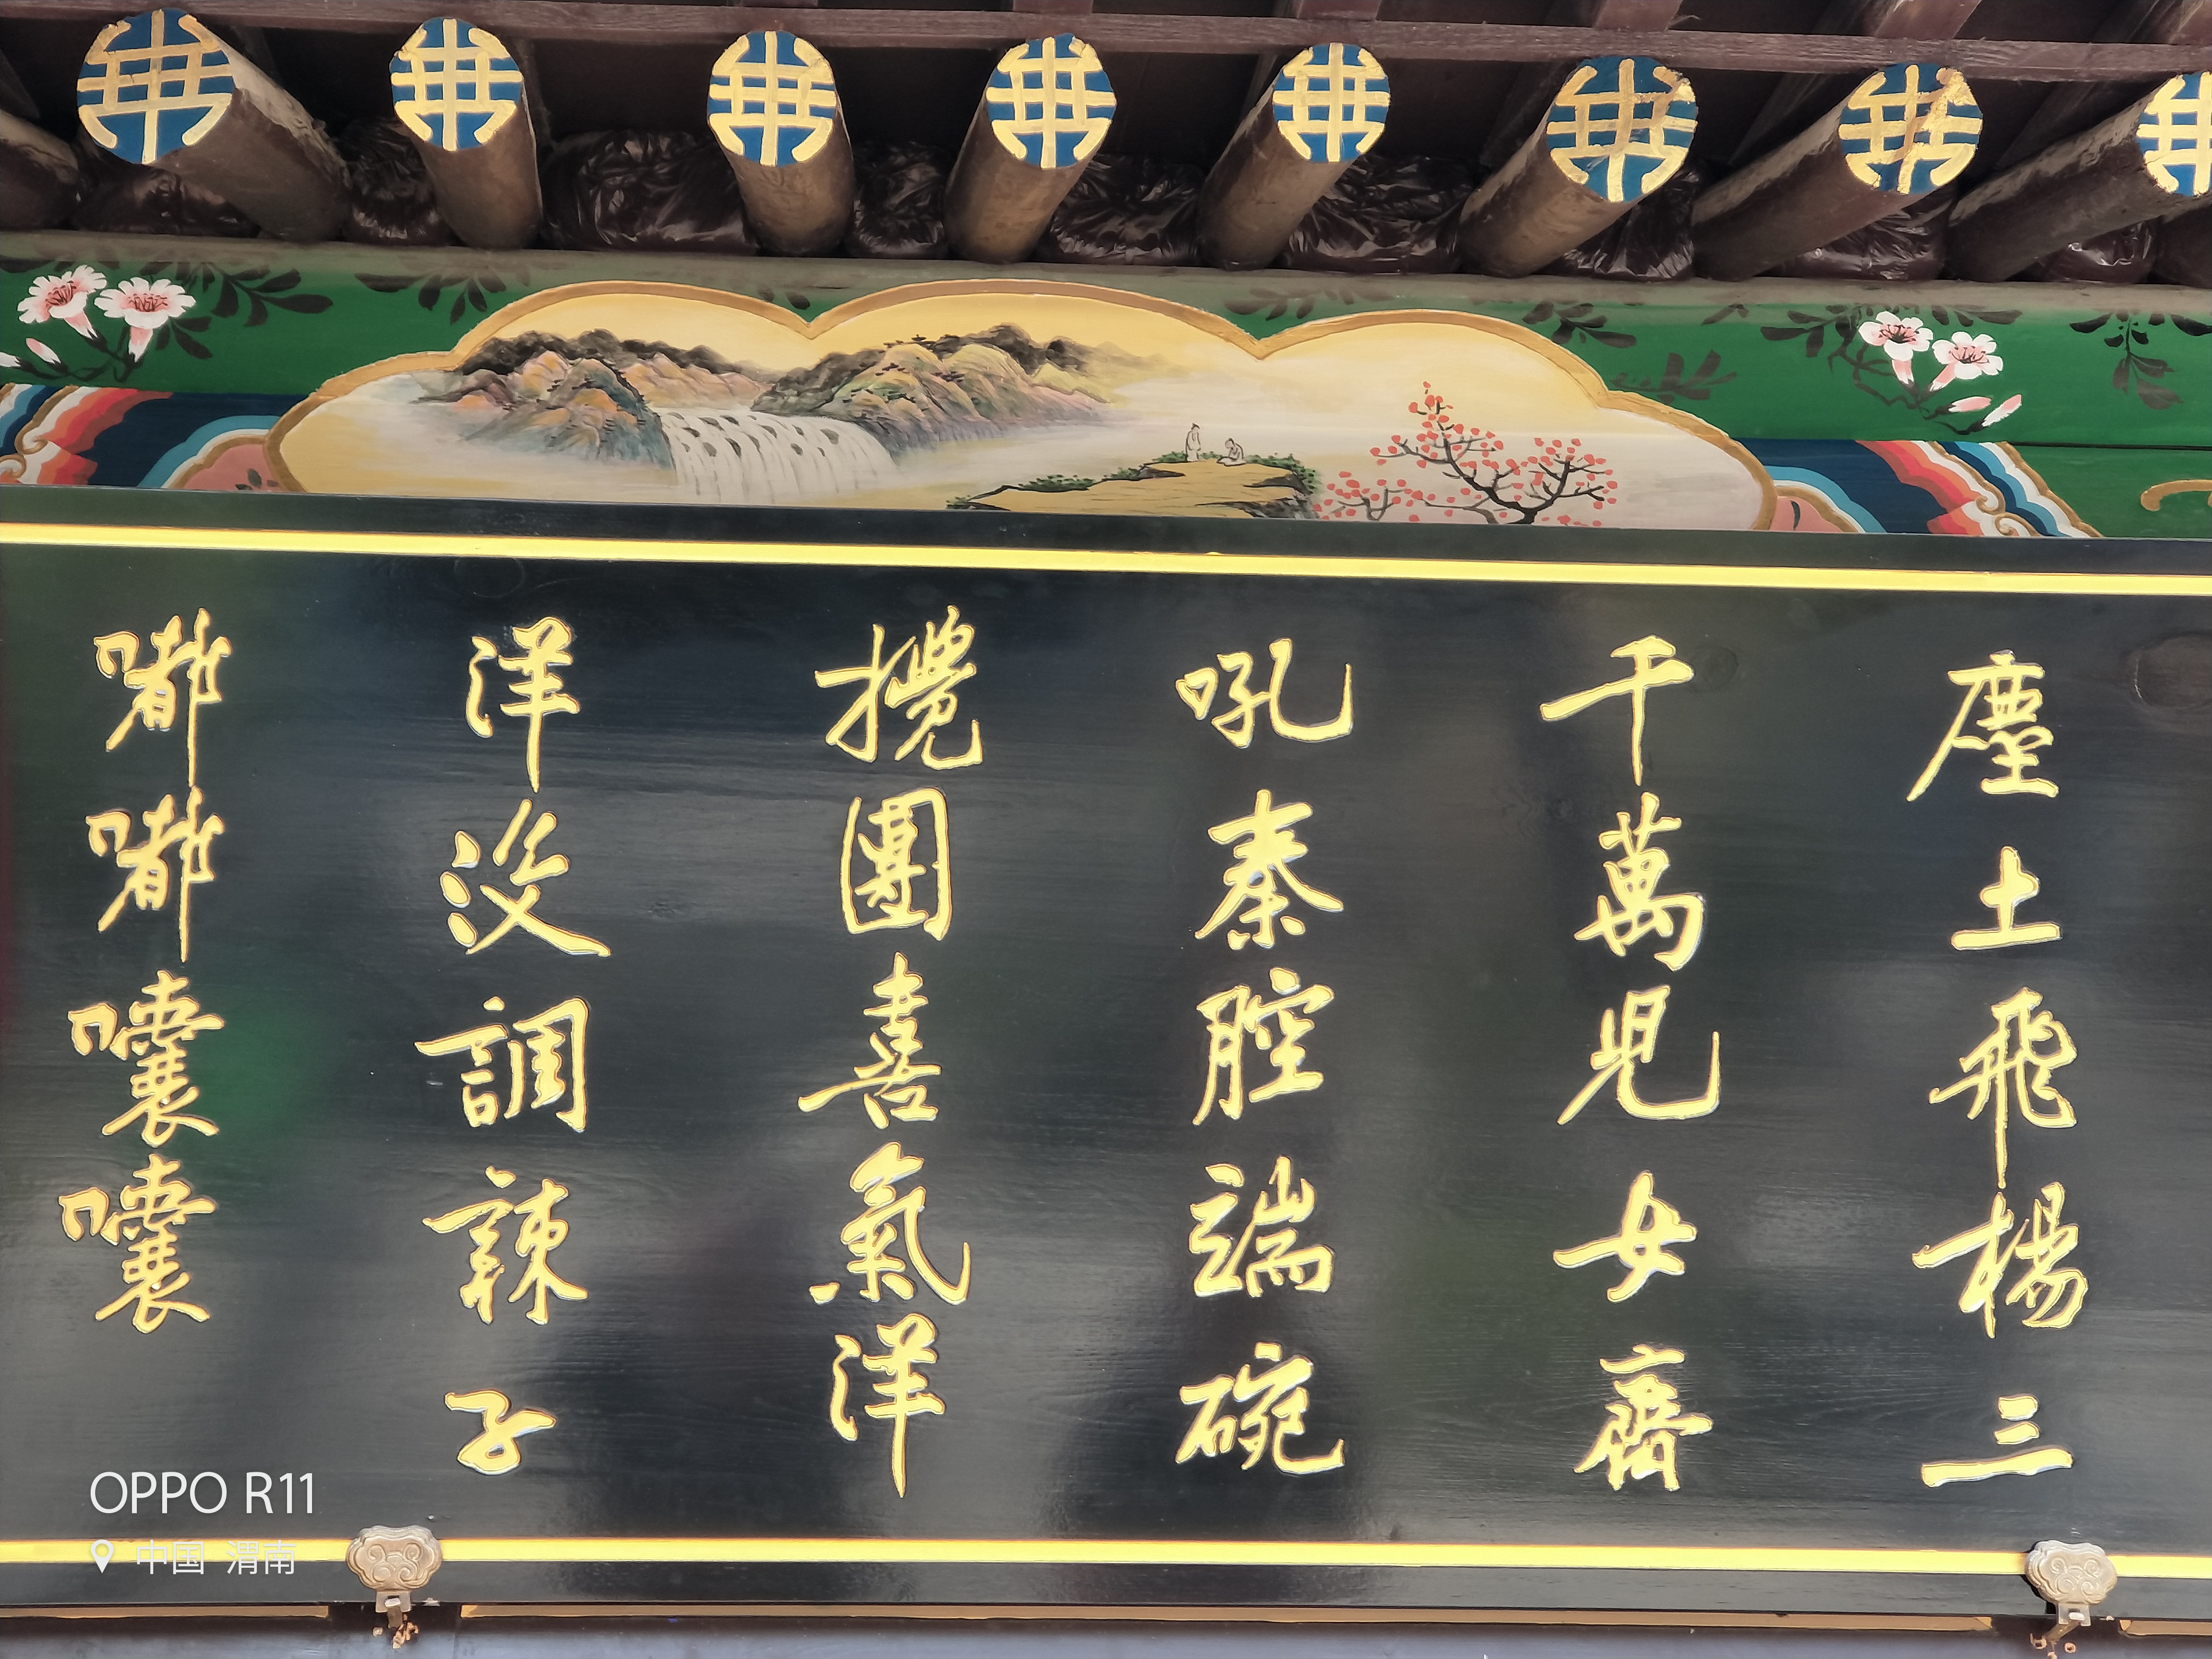 塵土飛楊三
千萬兒女齊
吼秦腔端碗
攪團喜氣洋
洋没調辣子
嘟嘟囔囔
OPPO R11
中国 渭南